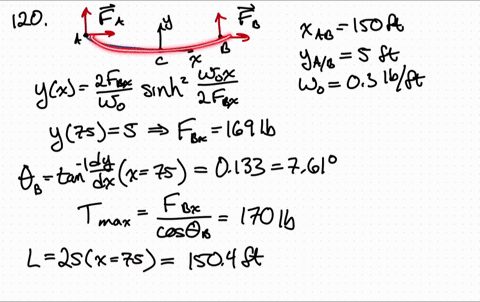 120.
F_A
A
y
C
x
F_B
B
x_AB = 150 ft
y_A/B = 5 ft
ω_0 = 0.3 lb/ft
y(x) = 2F_Bx/ω_0 sinh² ω_0x/2F_Bx
y(75) = 5 ⇒ F_Bx = 169 lb
θ_B = tan⁻¹ dy/dx (x=75) = 0.133 = 7.61°
T_max = F_Bx/cosθ_B = 170 lb
L = 2S(x=75) = 150.4 ft